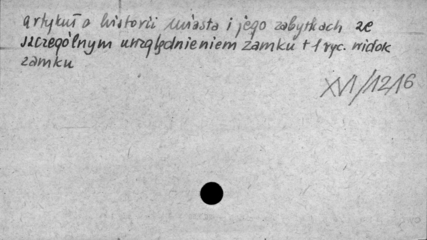 artykuł o historii miasta i jego zabytkach ze
szczególnym uwzględnieniem zamku + 1 ryc. widok
zamku
XVI/1216